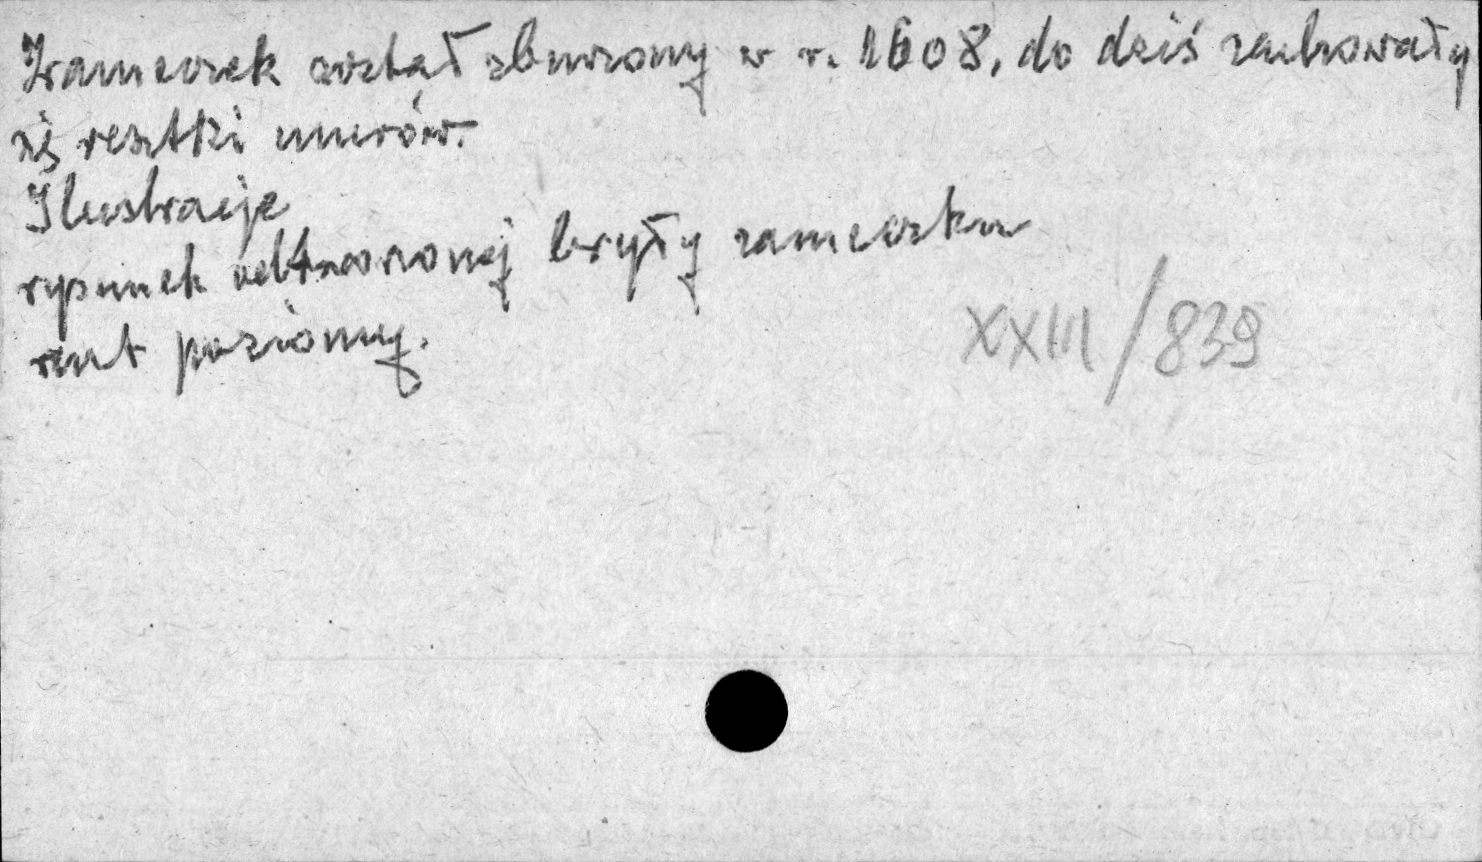 Zameczek został zburzony w r. 1608, do dziś zachowały
się resztki murów.
Ilustracje
rysunek odtworzonej bryły zameczku
rzut poziomy.
XXIII/839